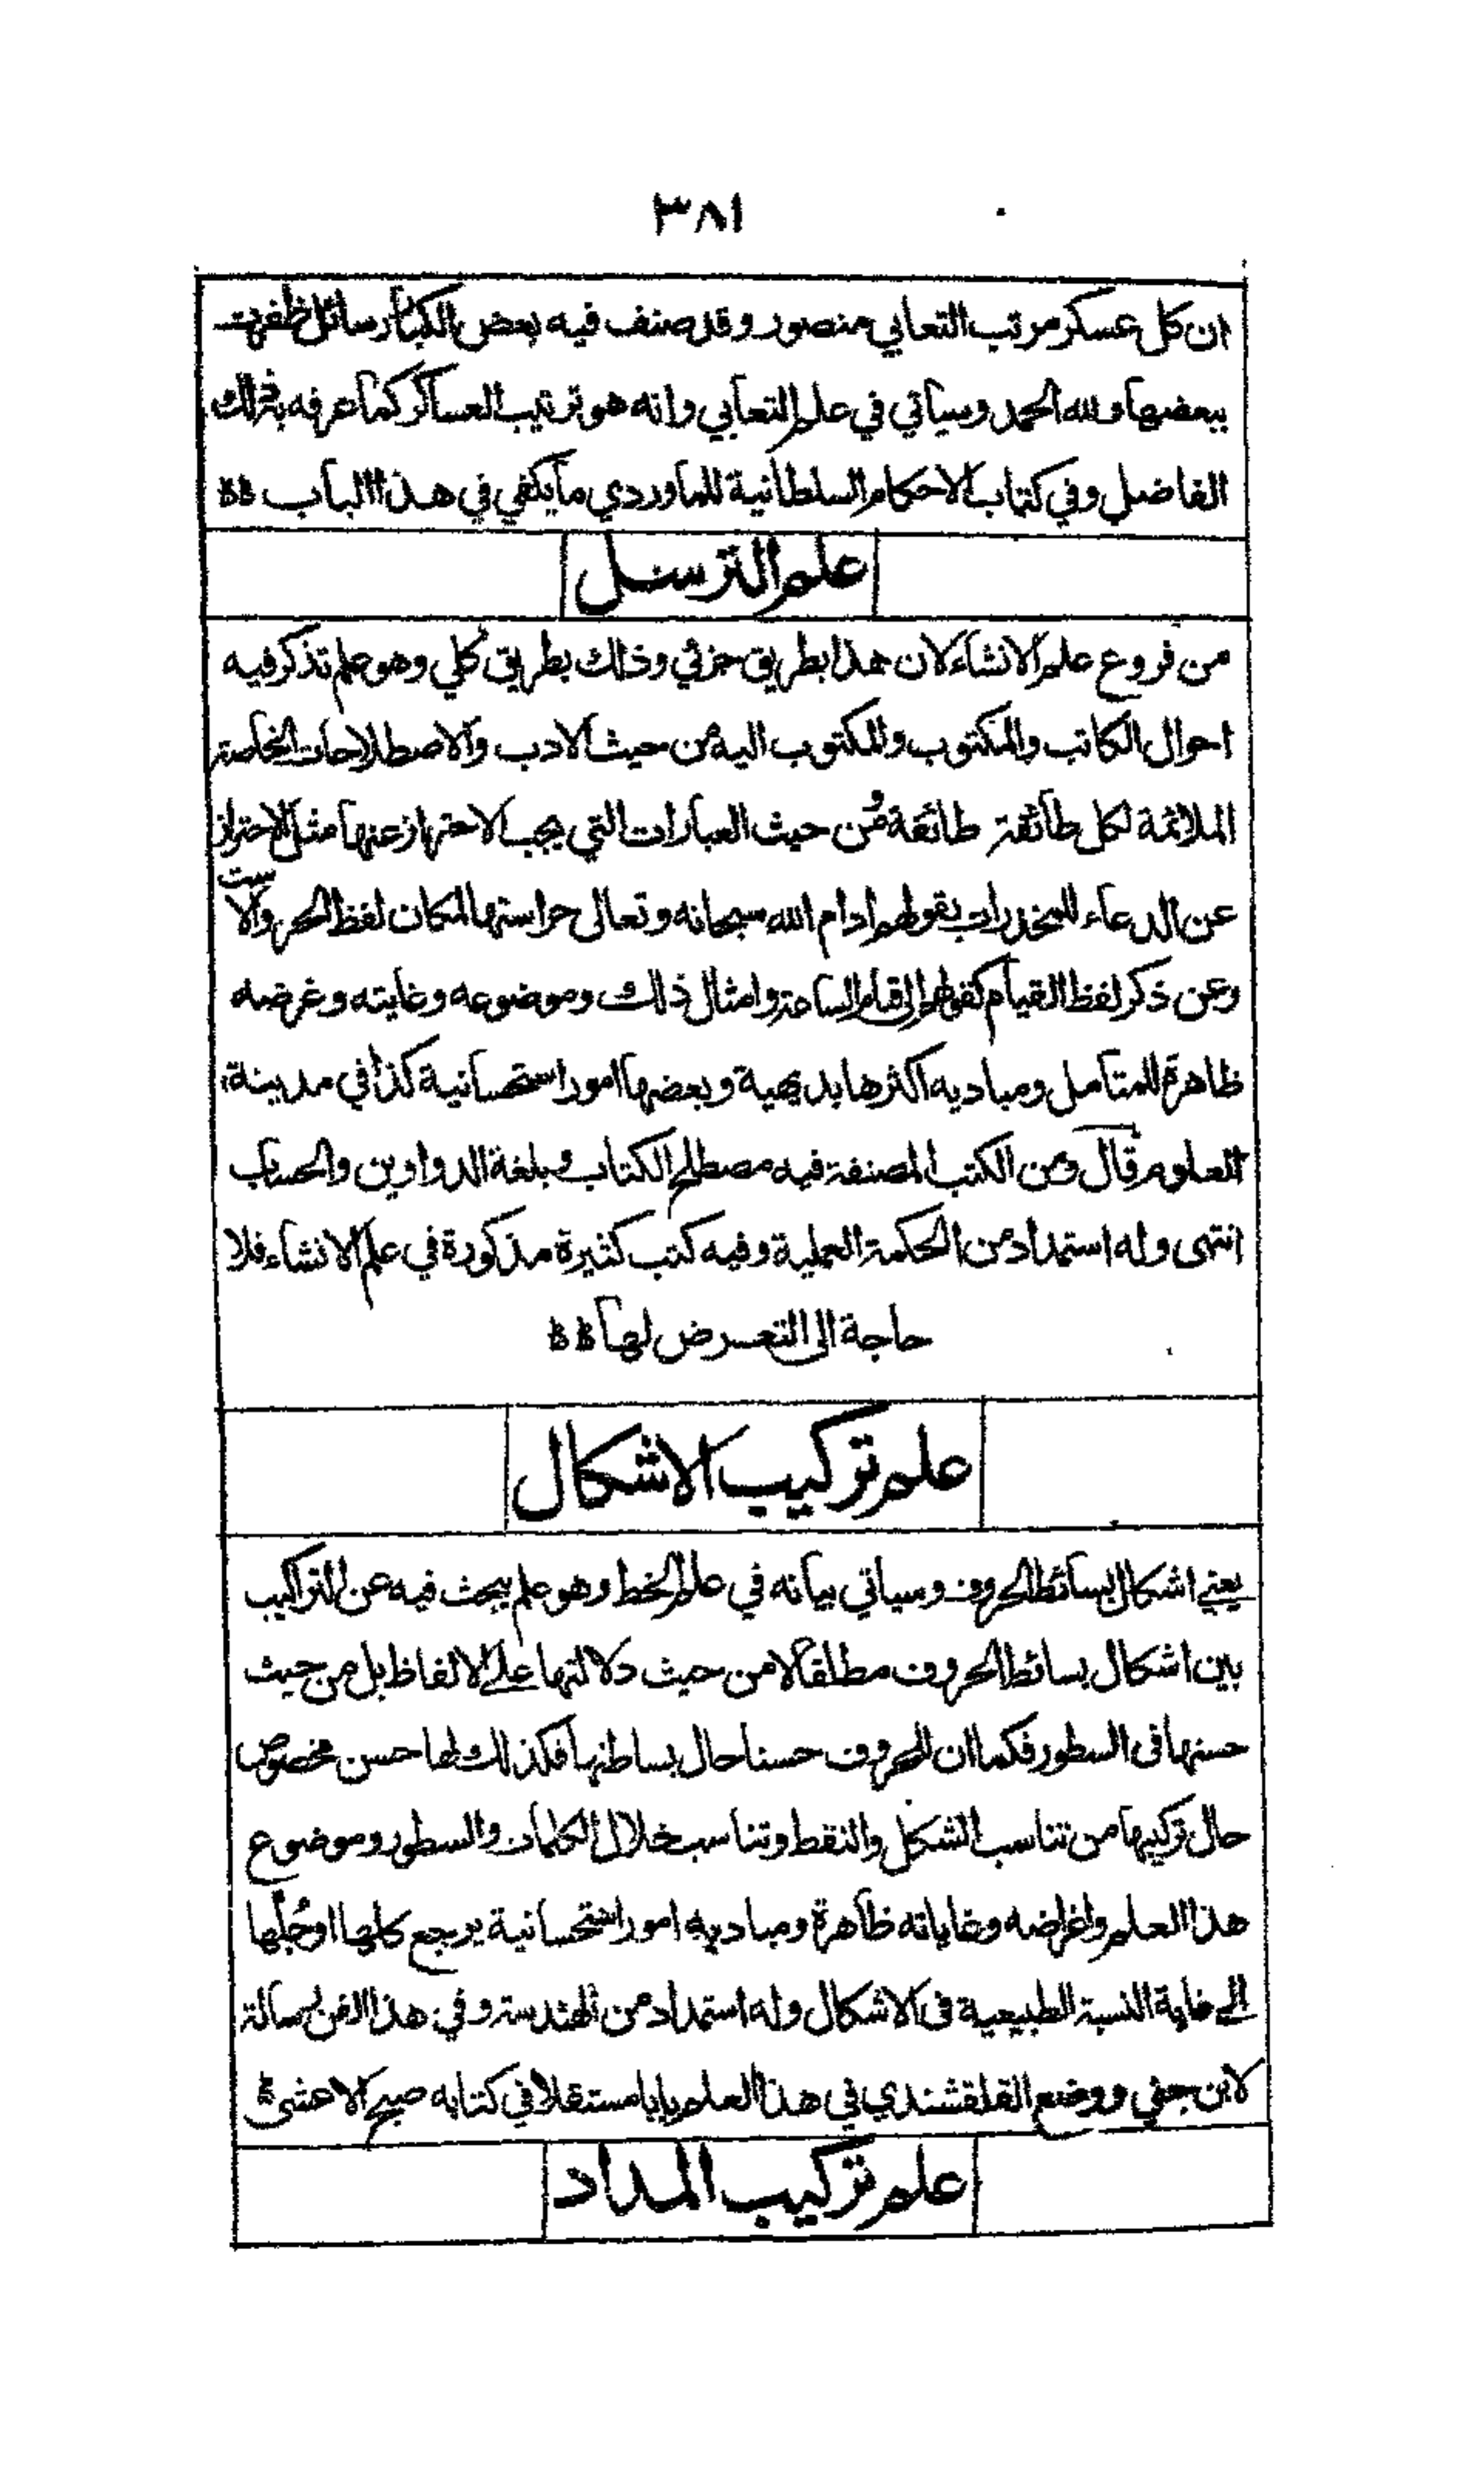 ٣٨١
ان كل عسكر مرتب التعابي منصور وقد صنف فيه بعض الكبار رسائل ظفرت
ببعضها ولله الحمد وسياتي في علم التعابي وانه هو ترتيب العساكر كما عرفه بذلك
الفاضل وفي كتاب الاحكام السلطانية للماوردي ما يكفي في هذا الباب
علم الترسل
من فروع علم الانشاء لان هذا بطريق جزئي وذلك بطريق كلي وهو علم تذكر فيه
احوال الكاتب والمكتوب والمكتوب اليه من حيث الادب والاصطلاحات الخاصة
الملائمة لكل طائفة طائفة ومن حيث العبارات التي يجب الاحتراز عنها مثل الاحتراز
عن الدعاء للمخدرات بقولهم ادام الله سبحانه وتعالى حراستها لمكان لفظ الحر والاست
وعن ذكر لفظ القيام كقولهم الى قيام الساعة وامثال ذلك وموضوعه وغايته وغرضه
ظاهرة للمتامل ومباديه اكثرها بديهية وبعضها امور استحسانية كذا في مدينة
العلوم قال ومن الكتب المصنفة فيه مصطلح الكتاب وبلغة الدواوين والحساب
انتهى وله استمداد من الحكمة العملية وفيه كتب كثيرة مذكورة في علم الانشاء فلا
حاجة الى التعرض لها
علم تركيب الاشكال
يعني اشكال بسائط الحروف وسياتي بيانه في علم الخط وهو علم يبحث فيه عن التراكيب
بين اشكال بسائط الحروف مطلقا لا من حيث دلالتها على الالفاظ بل من حيث
حسنها فى السطور فكما ان للحروف حسنا حال بساطتها فكذلك لها حسن مخصوص
حال تركيبها من تناسب الشكل والنقط وتناسب خلال الكلمات والسطور وموضوع
هذا العلم واغراضه وغاياته ظاهرة ومباديه امور استحسانية يرجع كلها او جُلّها
الى غاية النسبة الطبيعية فى الاشكال وله استمداد من الهندسة وفي هذا الفن رسالة
لابن جني ووضع القلقشندي في هذا العلم بابا مستقلا في كتابه صبح الاعشى
علم تركيب المداد